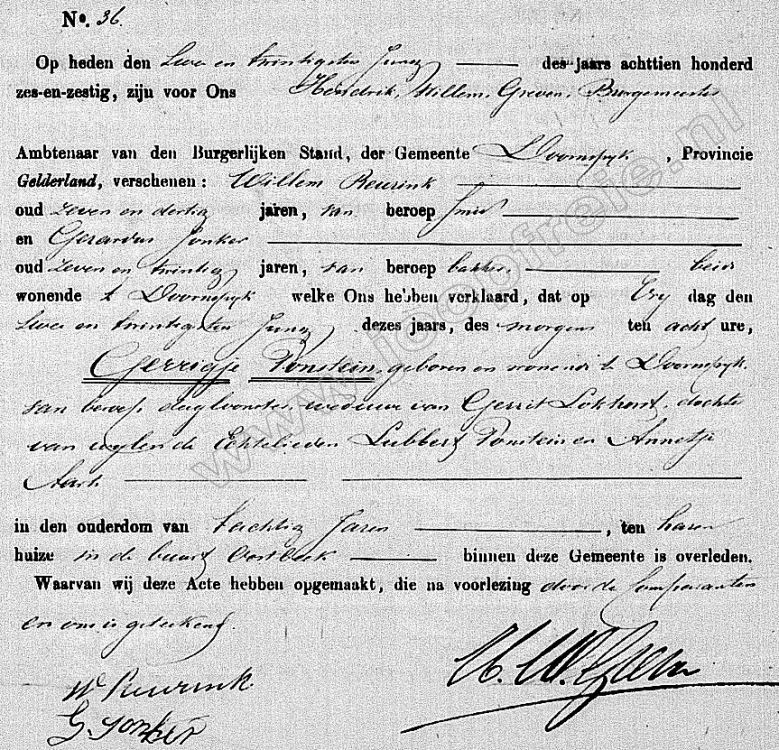 No. 36.
Op heden den twee en twintigsten Juny des jaars achttien honderd
zes-en-zestig, zijn voor Ons Hendrik Willem Greven, Burgemeester
Ambtenaar van den Burgerlijken Stand, der Gemeente Doornspyk, Provincie
Gelderland, verschenen: Willem Reurink
oud zeven en dertig jaren, van beroep smid
en Gerardus Jonker
oud zeven en twintig jaren, van beroep bakker, beid
wonende te Doornspyk welke Ons hebben verklaard, dat op Vry dag den
twee en twintigsten Juny dezes jaars, des morgens ten acht ure,
Gerrigje Ponstein, geboren en wonende te Doornspyk,
van beroep dagloonster, weduwe van Gerrit Lokhorst, dochter
van wylen de Echtelieden Lubbert Ponstein en Annetje
Aarts
in den ouderdom van tachtig Jaren, ten haren
huize in de buurt Oostbeek binnen deze Gemeente is overleden.
Waarvan wij deze Acte hebben opgemaakt, die na voorlezing door de Comparanten
en ons is geteekend.
W Reurink
G. Jonker
H. W. Greven
www.joopfreie.nl